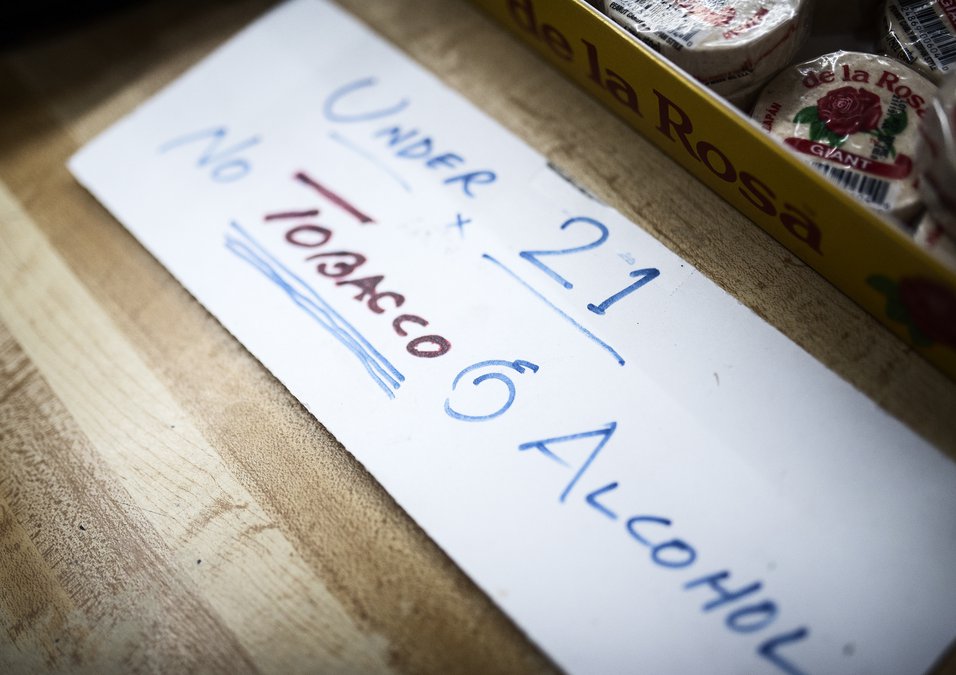 UNDER 21
No TOBACCO Ó ALCOHOL
de la Rosa
de la Rosa
GIANT